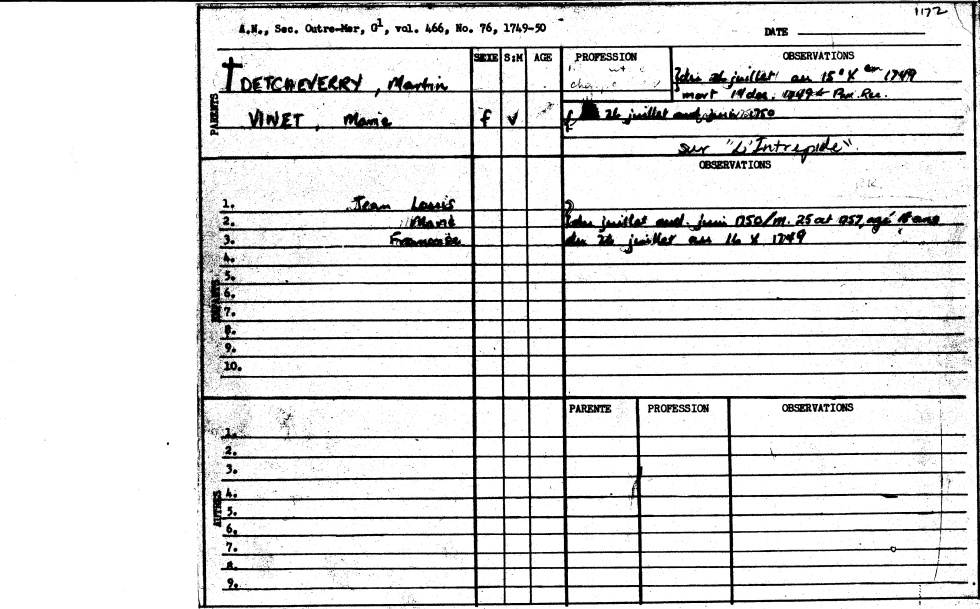 1172
A.N., Sec. Outre-Mer, G1, vol. 466, No. 76, 1749-50
DATE
SEXE S:M AGE PROFESSION OBSERVATIONS
PARENTS
DETCHEVERRY, Martin du 26 juillet au 15 Xbre 1749
mort 19 dec. 1749 Par. Rec.
VINET, Marie f v 26 juillet and juin 1750
sur "L'Intrepide".
OBSERVATIONS
ENFANTS
1. Jean Louis
2. Marie du juillet and. juin 1750/m. 25 oct 1757, agé ans
3. Francoise du 26 juillet au 16 X 1749
4.
5.
6.
7.
8.
9.
10.
PARENTE PROFESSION OBSERVATIONS
AUTRES
1.
2.
3.
4.
5.
6.
7.
8.
9.